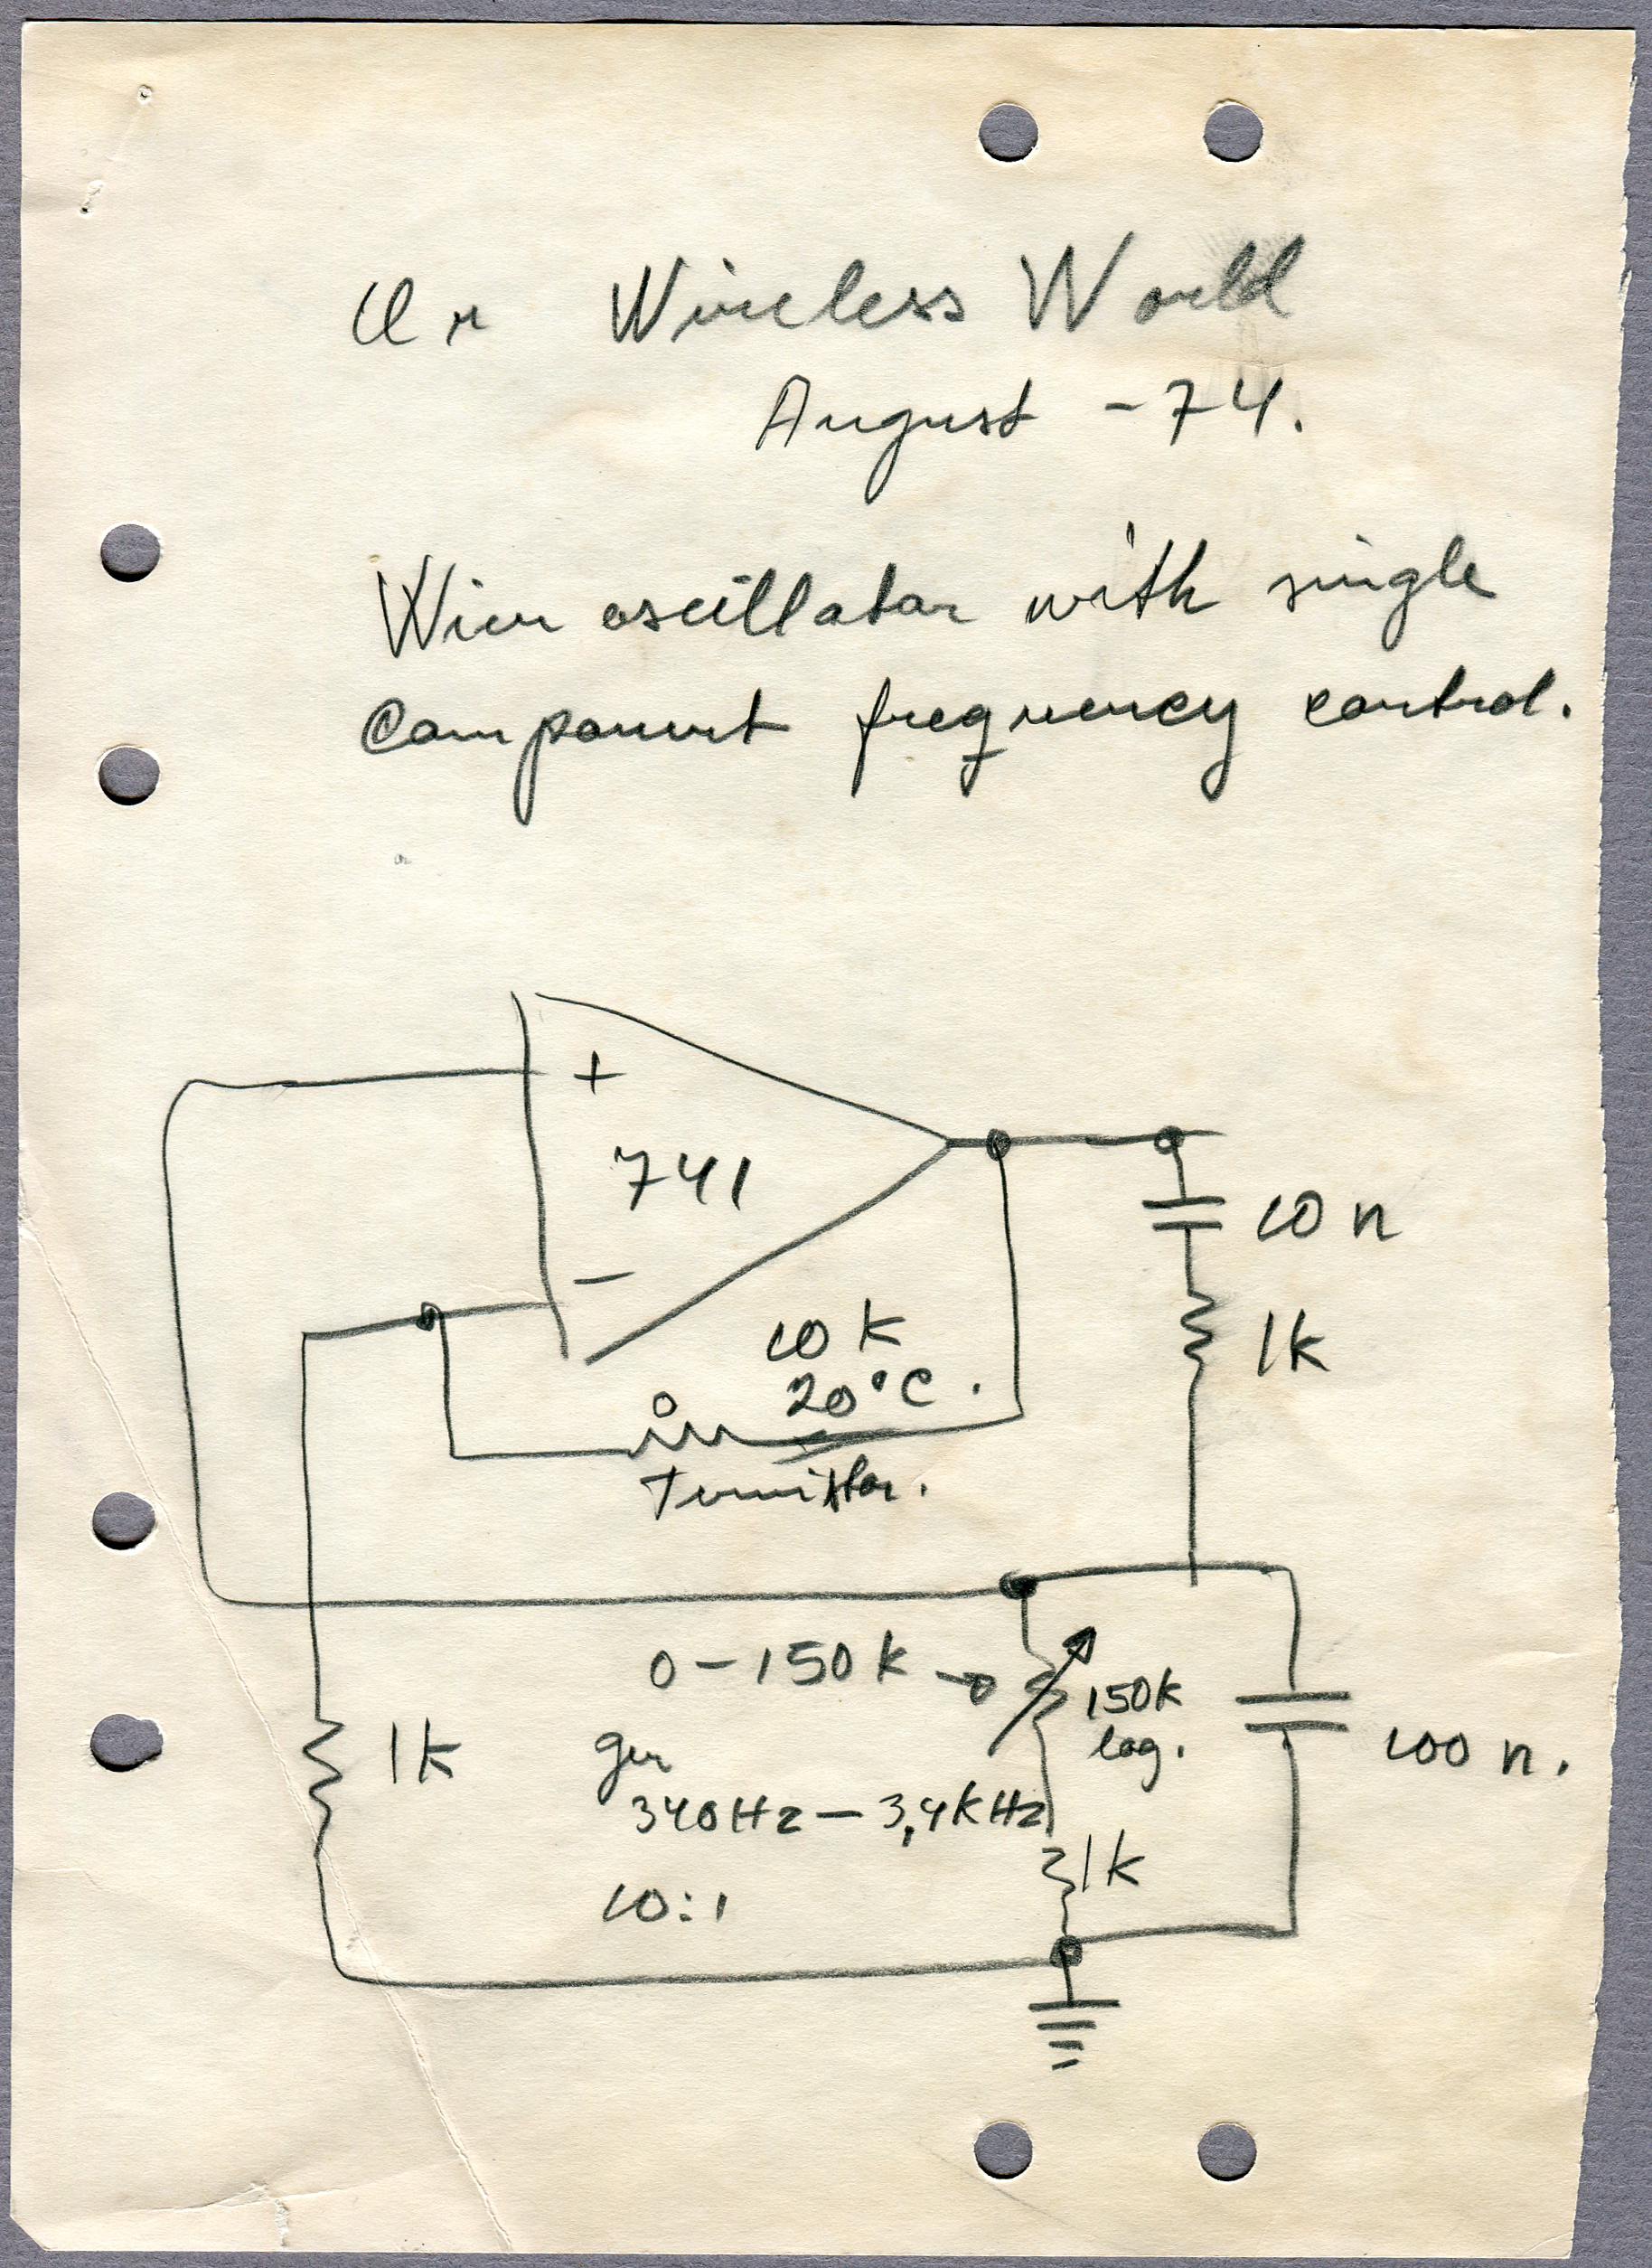 Ur Wireless World
August -74.
Wien oscillator with single
component frequency control.
+
741
-
10 n
10 k
20°C.
1k
Termistor.
0-150k
150k
log.
1k
ger
100 n.
340Hz - 3,4kHz
1k
10:1